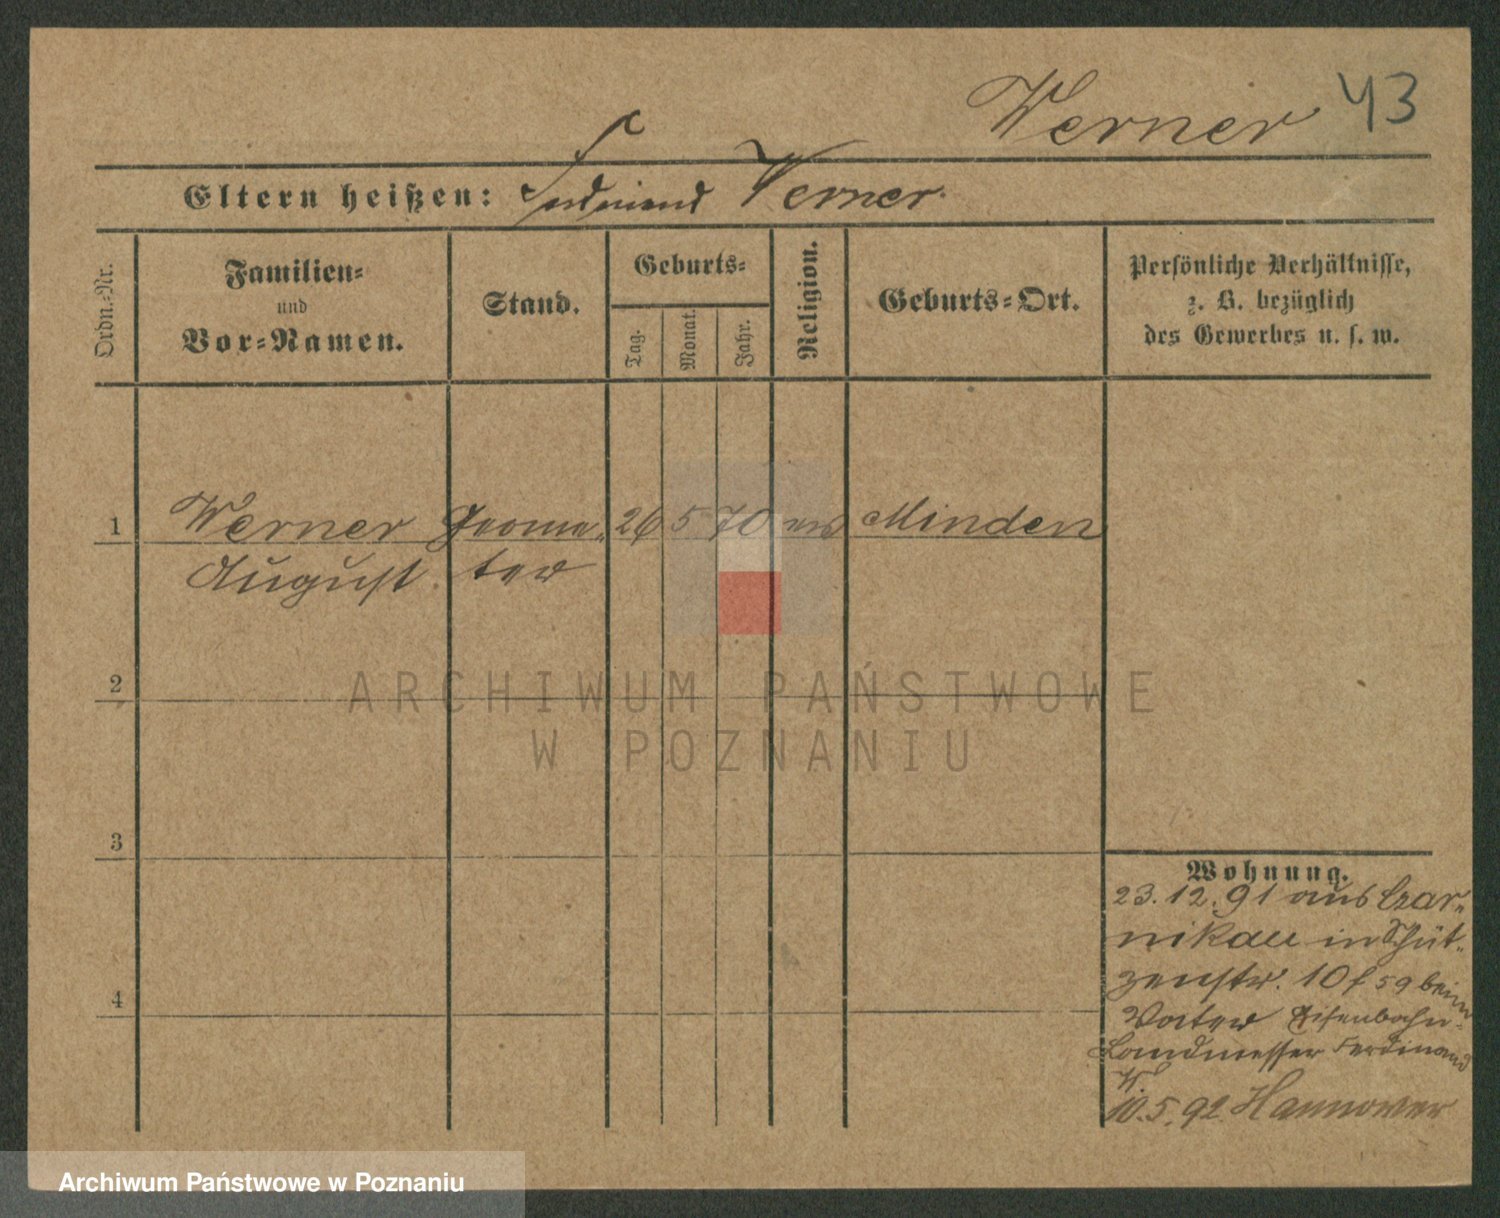 Werner 43
Eltern heißen: Ferdinand Werner.
Ordn.-Nr.
Familien-
und
Vor-Namen.
Stand.
Geburts-
Tag.
Monat.
Jahr.
Religion.
Geburts-Ort.
Persönliche Verhältnisse,
z. B. bezüglich
des Gewerbes u. s. w.
1 Werner Geome- 26 5 70 ev Minden
August. ter
2
ARCHIWUM PAŃSTWOWE
W POZNANIU
3
Wohnung.
23.12.91 aus Czar-
nikau in Schüt-
zenstr. 10 f 59 beim
Vater Eisenbahn-
Landmesser Ferdinand
W.
10.5.92 Hannower
4
Archiwum Państwowe w Poznaniu